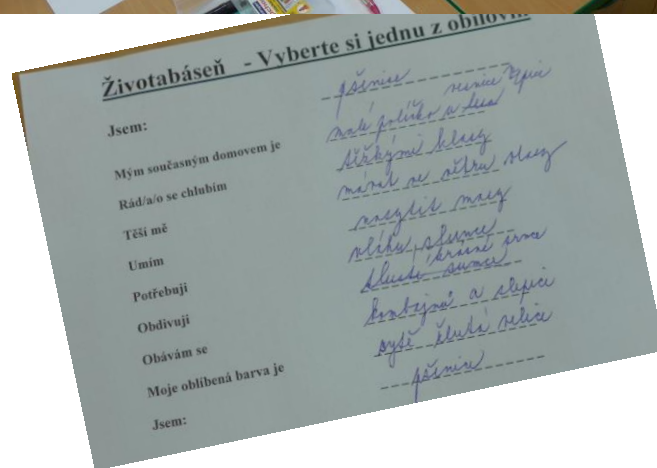 Životabáseň - Vyberte si jednu z obilovin
Jsem: pšenice
Mým současným domovem je malé políčko a
Rád/a/o se chlubím těžkými klasy
Těší mě mávat ve větru vlasy
Umím nasytit masy
Potřebuji vláhu, slunce
Obdivuji tlusté krásné
Obávám se kombajnů a slepici
Moje oblíbená barva je sytě žlutá velice
Jsem: pšenice